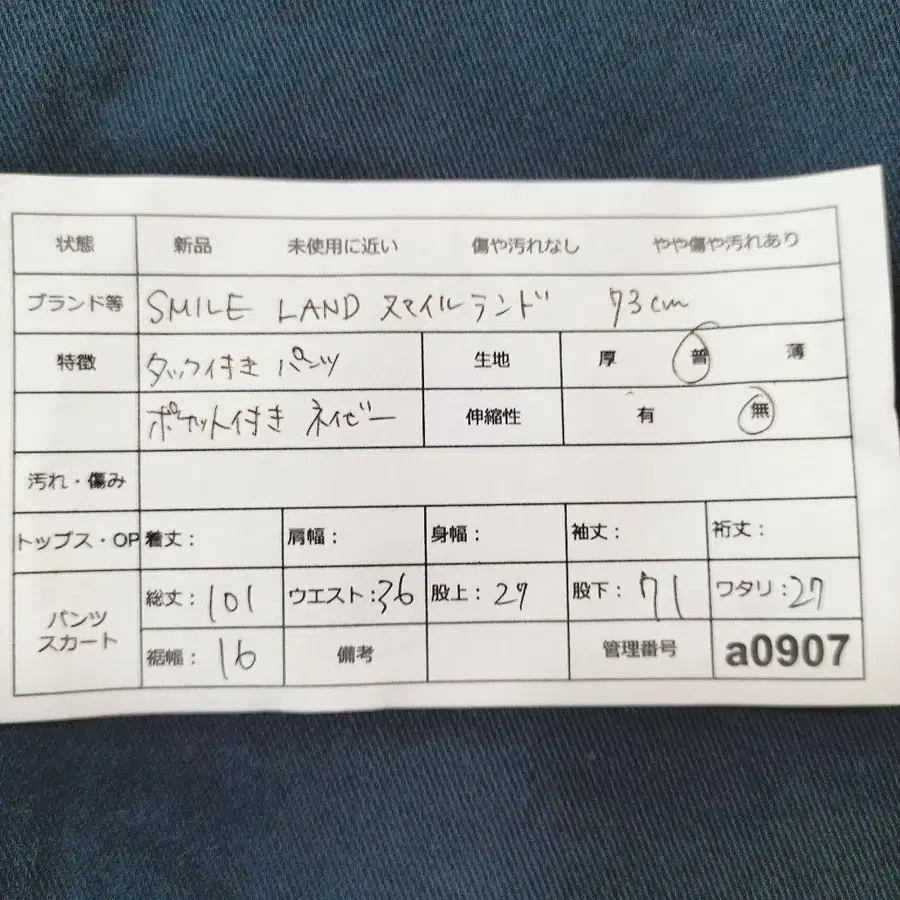 状態 新品 未使用に近い 傷や汚れなし やや傷や汚れあり
ブランド等 SMILE LAND スマイルランド 73cm
特徴 タック付き パンツ 生地 厚 普 薄
ポケット付き ネイビー 伸縮性 有 無
汚れ・傷み
トップス・OP 着丈: 肩幅: 身幅: 袖丈: 裄丈:
パンツ スカート 総丈:101 ウエスト:36 股上:29 股下:71 ワタリ:27
裾幅:16 備考 管理番号 a0907